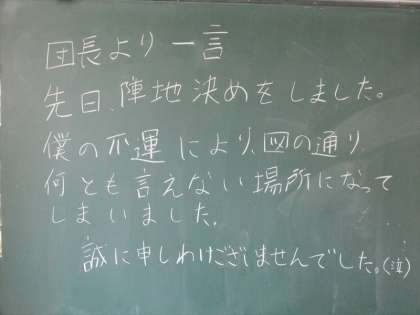 団長より一言
先日、陣地決めをしました。
僕の不運により、図の通り、
何とも言えない場所になって
しまいました。
誠に申しわけございませんでした。(泣)